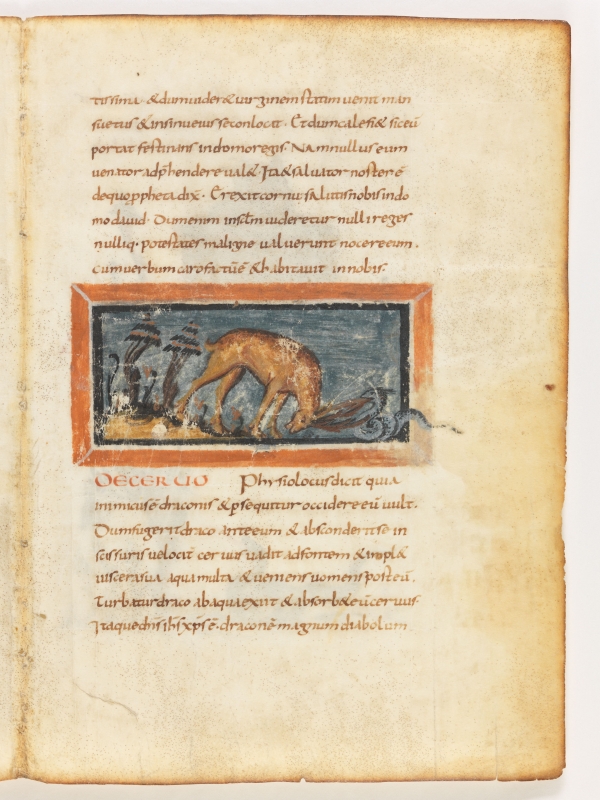 tissima · & dum uider& uirginem statim uenit man
suetus & insinueius seconlocat · Et dum calefi& siceū
portat festinans indomoregis · Nam nullus eum
uenator adp̄hendere ual& Ita & saluator noster ē
dequo ppheta dix̄ · Erexit cornu salutis nobis indo
mo dauid · Dum enim inscl̄m uideretur nulli reges
nulliq· potestates maligne ualuerunt nocere eum ·
Cum uerbum caro factū ē & habitauit in nobis·
DECERUO Physiolocus dicit quia
inimicus ē draconis & p̄sequitur occidere eū uult·
Dum fugerit draco ante eum & absconderit se in
scissuris uelocit̄ ceruus uadit adfontem & impl&
uiscerasua aqua multa & ueniens uomens post eū·
Turbatur draco abaqua exiit & absorb& eū ceruus·
Itaque dn̄s ih̄s xp̄s ē · draconē magnum diabolum